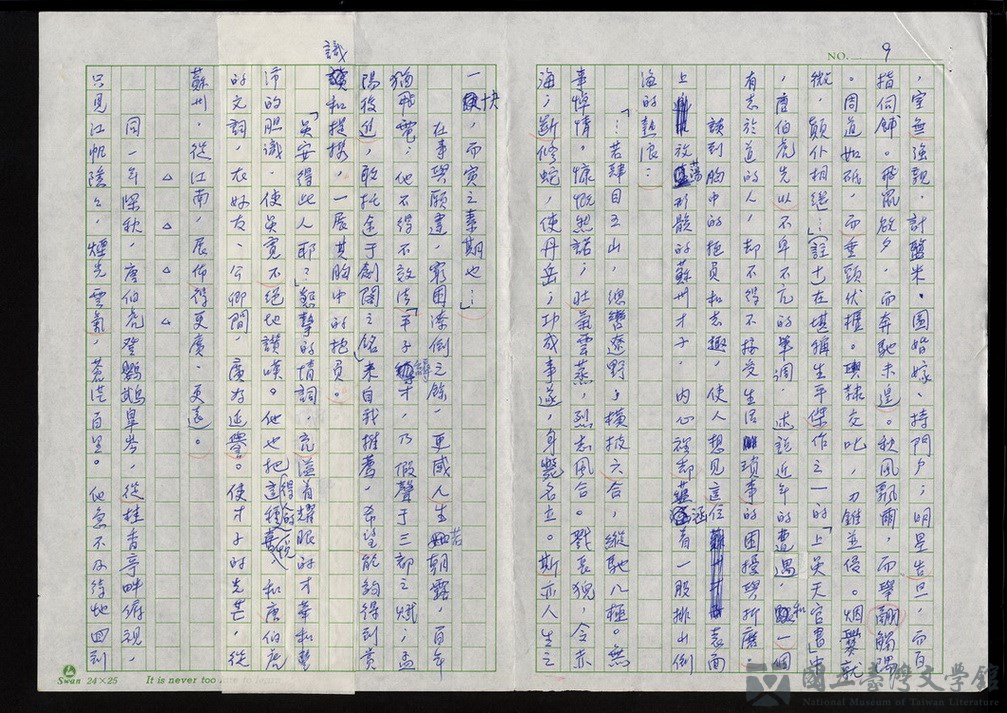 NO. 9
，室無強親。計鹽米，圖婚嫁，持門戶；明星告旦，而百
指伺餔。飛鼠啟夕，而奔馳未遑。秋風飄爾，而舉翮觸隅
。周道如砥，而垂頭伏櫪。輿隸交叱，刀錐並侵。烟爨就
微，顛仆相繼」…（註七）在堪稱生平傑作之一的「上吳天官書」中
，唐伯虎先以不卑不亢的筆調，述說近年的遭遇，和一個
有志於道的人，却不得不接受生活瑣事的困擾與折磨。
談到胸中的抱負和志趣，使人想見這位表面
上放蕩形骸的蘇州才子，內心裡却蘊涵著一股排山倒
海的熱浪：
「…若肆目五山，總轡遼野，橫披六合，縱馳八極。無
事悼情，慷慨然諾；壯氣雲蒸，烈志風合。戮長猊，令赤
海；斷修蛇，使丹岳；功成事遂，身斃名立。斯亦人生之
一快，而寅之素期也…」
在事與願違，窮困潦倒之餘，更感人生若朝露，百年
猶飛電；他不得不效法「平子縟才，乃假聲于三都之賦；孟
陽後進，敢托途于劍閣之銘」來自我推薦，希望能夠得到賞
識和提携，一展其胸中的抱負。
「吳安得此人耶？」懇摯的情詞，充溢着耀眼的才華和
沛的胆識，使吳寬不絕地讚嘆。他也把這種得和唐伯虎
的文詞，在好友、公卿間，廣為延譽。使才子的光芒，從
蘇州，從江南，展佈得更廣、更遠。
△　△　△　△
同一年深秋，唐伯虎登鸚鵡皐岑，從桂香亭畔俯視，
只見江帆隱々，煙光雲氣，蒼茫百里。他急不及待地回到
Swan 24×25 It is never too late to learn
國立臺灣文學館
National Museum of Taiwan Literature